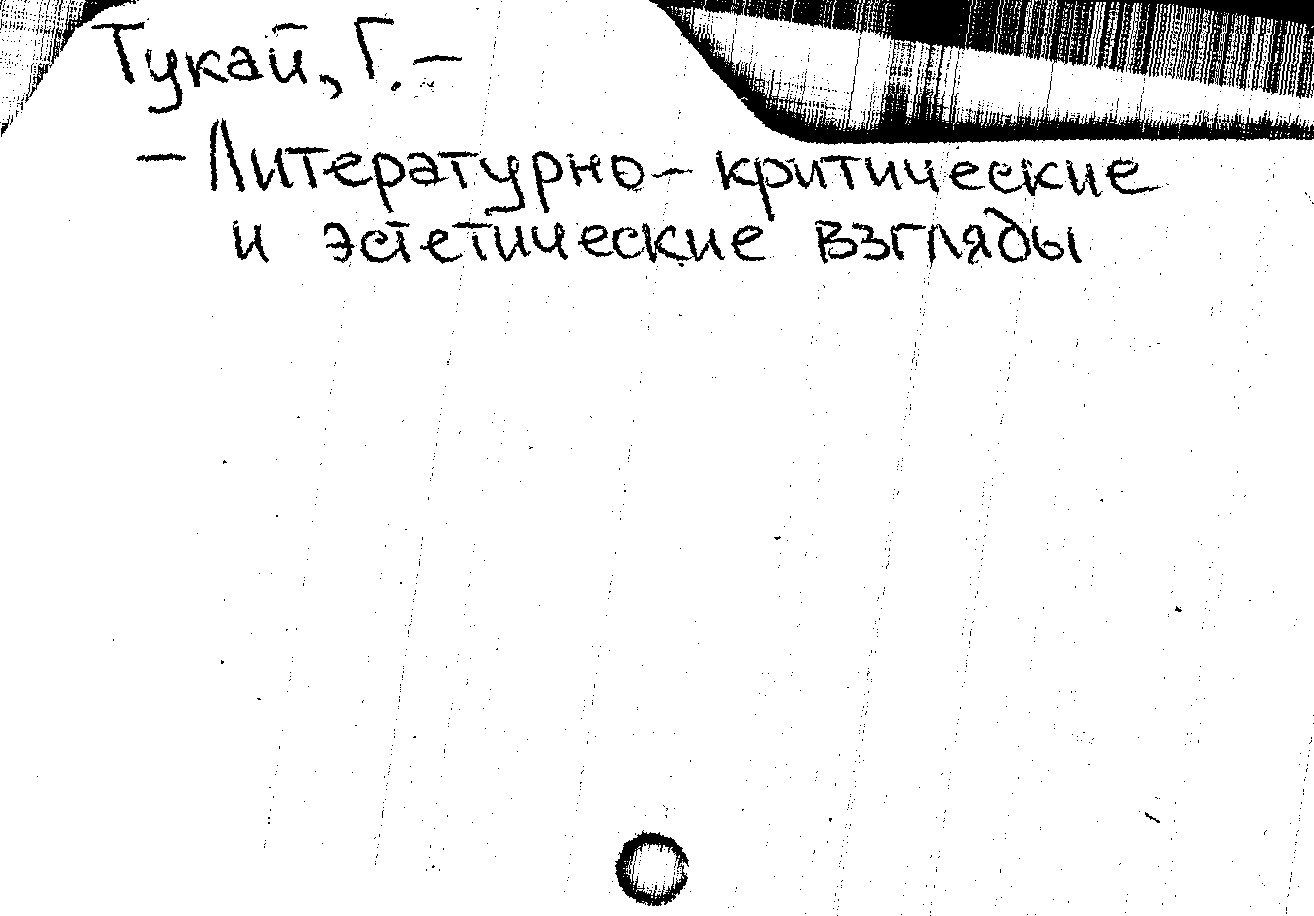 Тукай, Г. –
– Литературно – критические
и эстетические взгляды